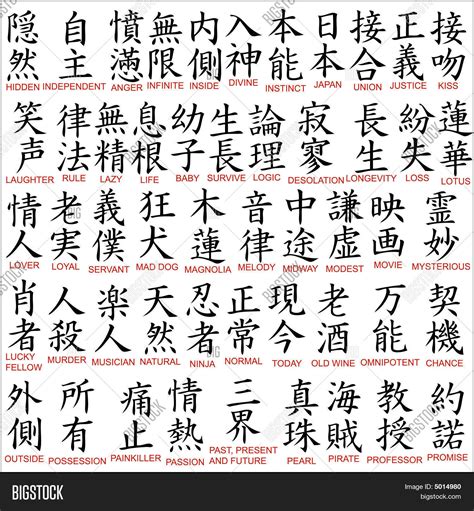 隠然 自主 憤懣 無限 内側 入神 本能 日本 接合 正義 接吻
HIDDEN INDEPENDENT ANGER INFINITE INSIDE DIVINE INSTINCT JAPAN UNION JUSTICE KISS
笑声 律法 無精 息根 幼子 生長 論理 寂寥 長生 紛失 蓮華
LAUGHTER RULE LAZY LIFE BABY SURVIVE LOGIC DESOLATION LONGEVITY LOSS LOTUS
情人 老実 義僕 狂犬 木蓮 音律 中途 謙虚 映画 霊妙
LOVER LOYAL SERVANT MAD DOG MAGNOLIA MELODY MIDWAY MODEST MOVIE MYSTERIOUS
肖者 人殺 楽人 天然 忍者 正常 現今 老酒 万能 契機
LUCKY FELLOW MURDER MUSICIAN NATURAL NINJA NORMAL TODAY OLD WINE OMNIPOTENT CHANCE
外側 所有 痛止 情熱 三界 真珠 海賊 教授 約諾
OUTSIDE POSSESSION PAINKILLER PASSION PAST, PRESENT AND FUTURE PEARL PIRATE PROFESSOR PROMISE
BIGSTOCK
Image ID: 5014980
bigstock.com